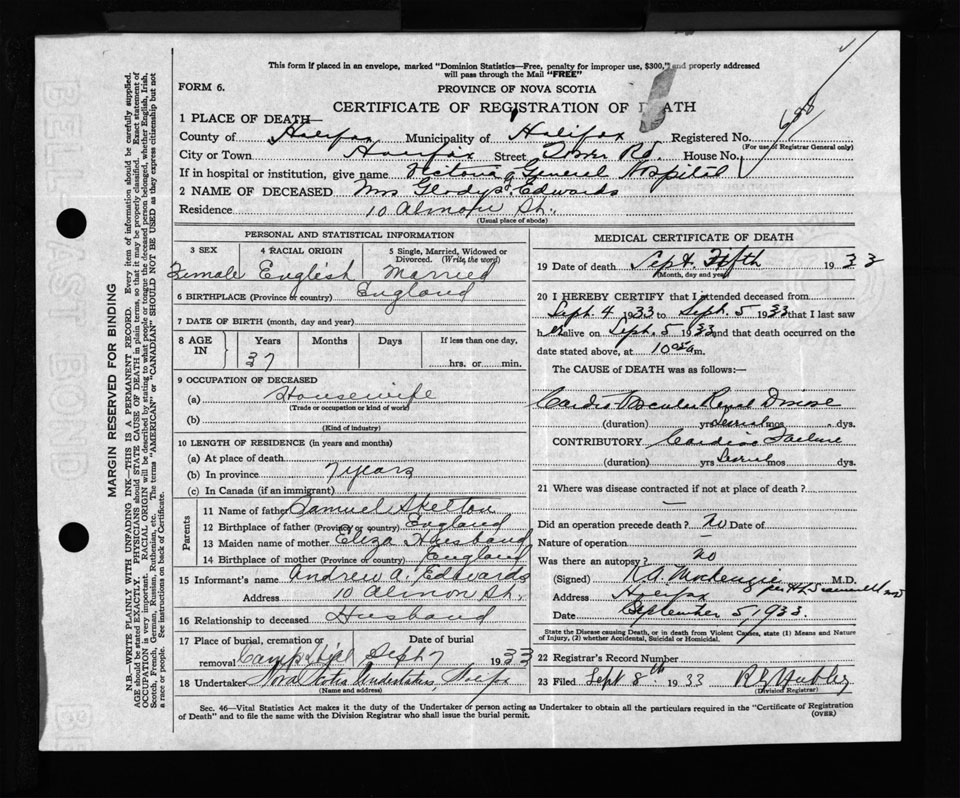 This form if placed in an envelope, marked "Dominion Statistics—Free, penalty for improper use, $300," and properly addressed
will pass through the Mail "FREE"
FORM 6.
PROVINCE OF NOVA SCOTIA
CERTIFICATE OF REGISTRATION OF DEATH
1 PLACE OF DEATH—
County of Halifax Municipality of Halifax Registered No.
(For use of Registrar General only)
City or Town Halifax Street Tower Rd. House No.
If in hospital or institution, give name Victoria General Hospital
2 NAME OF DECEASED Mrs Gladys Edwards
Residence 10 Almon St.
(Usual place of abode)
PERSONAL AND STATISTICAL INFORMATION
3 SEX 4 RACIAL ORIGIN 5 Single, Married, Widowed or
Divorced. (Write the word)
Female English Married
6 BIRTHPLACE (Province or country) England
7 DATE OF BIRTH (month, day and year)
8 AGE IN Years Months Days If less than one day,
37 hrs. or min.
9 OCCUPATION OF DECEASED
(a) Housewife
(Trade or occupation or kind of work)
(b)
(Kind of industry)
10 LENGTH OF RESIDENCE (in years and months)
(a) At place of death
(b) In province 7 years
(c) In Canada (if an immigrant)
Parents
11 Name of father Samuel Skelton
12 Birthplace of father (Province or country) England
13 Maiden name of mother Eliza
14 Birthplace of mother (Province or country) England
15 Informant's name Andrew A. Edwards
Address 10 Almon St.
16 Relationship to deceased Husband
17 Place of burial, cremation or Date of burial
removal Camp Hill Sept 7 1933
18 Undertaker Nova Scotia Undertakers Hfx
(Name and address)
MEDICAL CERTIFICATE OF DEATH
19 Date of death Sept. Fifth 1933
(Month, day and year)
20 I HEREBY CERTIFY that I attended deceased from
Sept. 4 1933 to Sept. 5 1933 that I last saw
her alive on Sept. 5 1933 and that death occurred on the
date stated above, at 10 a m.
The CAUSE of DEATH was as follows:—
Cardio Vascular Renal Disease
(duration) yrs. several mos. dys.
CONTRIBUTORY Cardiac Failure
(duration) yrs. several mos. dys.
21 Where was disease contracted if not at place of death?
—
Did an operation precede death? No Date of
Nature of operation —
Was there an autopsy? no
(Signed) K.A. Mackenzie M.D.
Address Halifax
Date September 5, 1933.
State the Disease causing Death, or in death from Violent Causes, state (1) Means and Nature
of Injury, (2) whether Accidental, Suicidal or Homicidal.
22 Registrar's Record Number
23 Filed Sept 8th 1933
(Division Registrar)
Sec. 46—Vital Statistics Act makes it the duty of the Undertaker or person acting as Undertaker to obtain all the particulars required in the "Certificate of Registration
of Death" and to file the same with the Division Registrar who shall issue the burial permit. (OVER)
MARGIN RESERVED FOR BINDING
N.B.—WRITE PLAINLY WITH UNFADING INK—THIS IS A PERMANENT RECORD. Every item of information should be carefully supplied.
AGE should be stated EXACTLY. PHYSICIANS should STATE CAUSE OF DEATH in plain terms, so that it may be properly classified. Exact statement of
OCCUPATION is very important. RACIAL ORIGIN will be described by stating to what people or tongue the deceased person belonged, whether English, Irish,
Scotch, French, German, Russian, Ruthenian, etc. The terms "AMERICAN" or "CANADIAN" SHOULD NOT BE USED as they express citizenship but not
a race or people. See instructions on back of Certificate.